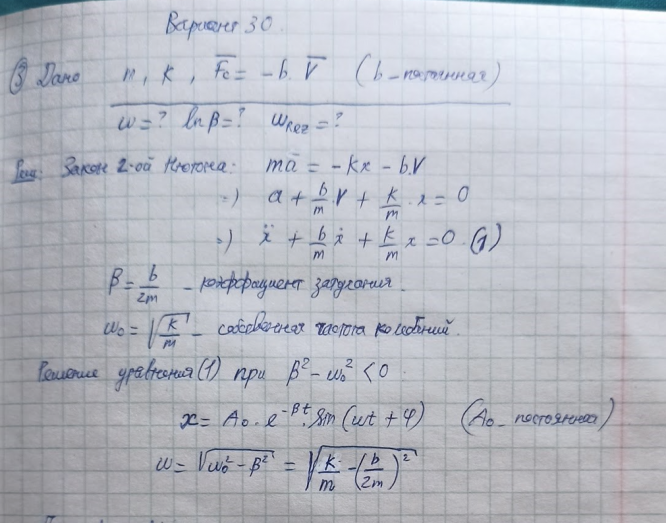 Вариант 30.
③ Дано m, k, F̅c = -b·V̅ (b - постоянная)
ω=? lnβ=? ωрез=?
Реш: Закон 2-ой Ньютона: ma̅ = -kx - b·V
=) a + b/m·V + k/m·x = 0
=) ẍ + b/m ẋ + k/m x = 0. (1)
β = b/2m - коэффициент затухания.
ω₀ = √(k/m) - собственная частота колебаний.
Решение уравнения (1) при β² - ω₀² < 0
x = A₀·e^(-βt)·sin(ωt + φ) (A₀ - постоянная)
ω = √(ω₀² - β²) = √(k/m - (b/2m)²)